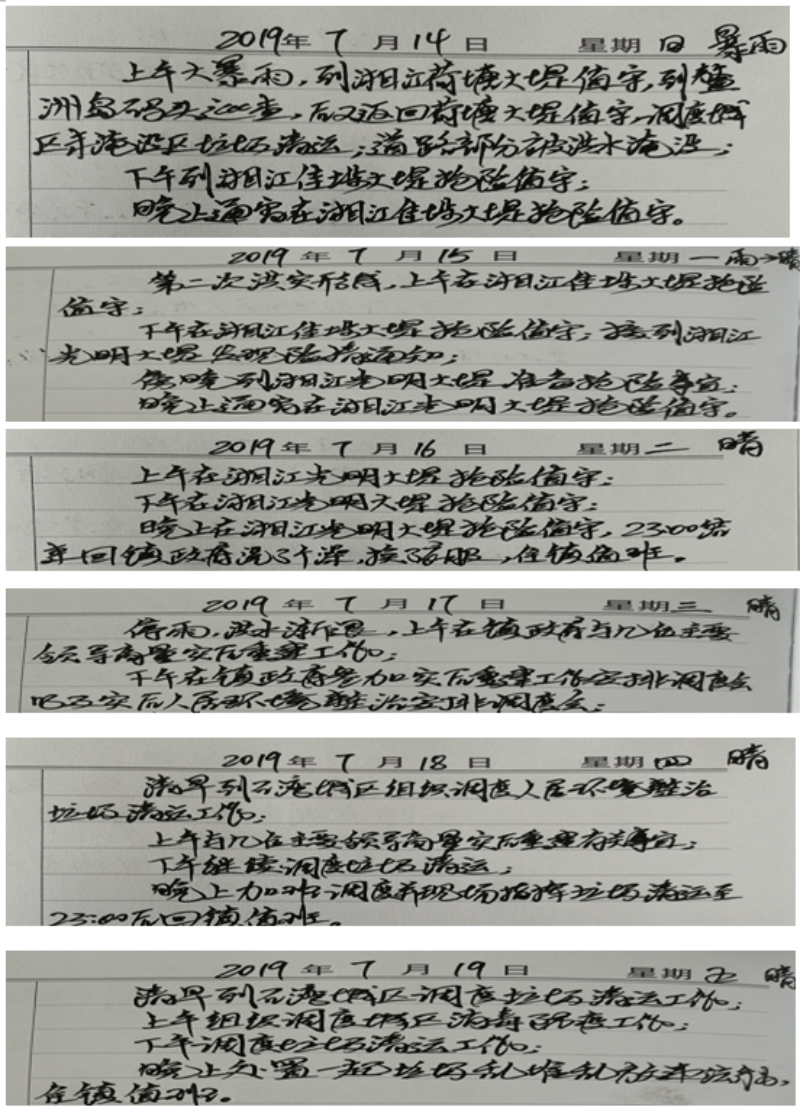 2019年 7 月 14 日 星期 日 暴雨
上午大暴雨,到湘江荷塘大堤值守,到鳌
洲岛码头巡查,后又返回荷塘大堤值守,调度城
区未淹没区垃圾清运;道路部分被洪水淹没;
下午到湘江佳塅大堤抢险值守;
晚上通宵在湘江佳塅大堤抢险值守。
2019 年 7 月 15 日 星期 一 雨→晴
第二次洪灾形成,上午在湘江佳塅大堤抢险
值守;
下午在湘江佳塅大堤抢险值守;接到湘江
光明大堤发现险情通知;
傍晚到湘江光明大堤准备抢险事宜;
晚上通宵在湘江光明大堤抢险值守。
2019 年 7 月 16 日 星期 二 晴
上午在湘江光明大堤抢险值守;
下午在湘江光明大堤抢险值守;
晚上在湘江光明大堤抢险值守,23:00结
束回镇政府洗了个澡,换衣服,住镇值班。
2019 年 7 月 17 日 星期 三 晴
停雨,洪水渐退,上午在镇政府与几位主要
领导商量灾后重建工作;
下午在镇政府参加灾后重建工作安排调度会
以及灾后人居环境整治安排调度会;
2019 年 7 月 18 日 星期 四 晴
清早到石湾城区组织调度人居环境整治
垃圾清运工作;
上午与几位主要领导商量灾后重建有关事宜;
下午继续调度垃圾清运;
晚上加班调度和现场指挥垃圾清运至
23:00后回镇值班。
2019 年 7 月 19 日 星期 五 晴
清早到石湾城区调度垃圾清运工作;
上午组织调度城区消毒防疫工作;
下午调度垃圾清运工作;
晚上处置一起垃圾乱堆乱放违法行为,
住镇值班。